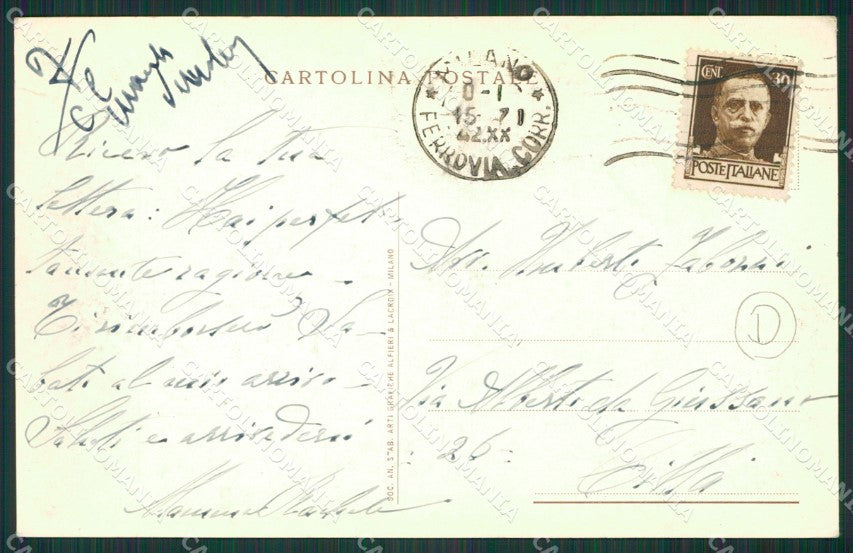 CARTOLINA POSTALE
MILANO
0-1
15. 7
42.XX
FERROVIA CORR.
CENT. 30
POSTE ITALIANE
Ricevo la tua
lettera: Hai perfet-
tamente ragione -
Ti rimborserò Sa-
bato al mio arrivo -
Saluti e arrivederci
Umberto
D
Via Alberto da Giussano
26
SOC. AN. STAB. ARTI GRAFICHE ALFIERI & LACROIX - MILANO
CARTOLINOMANIA